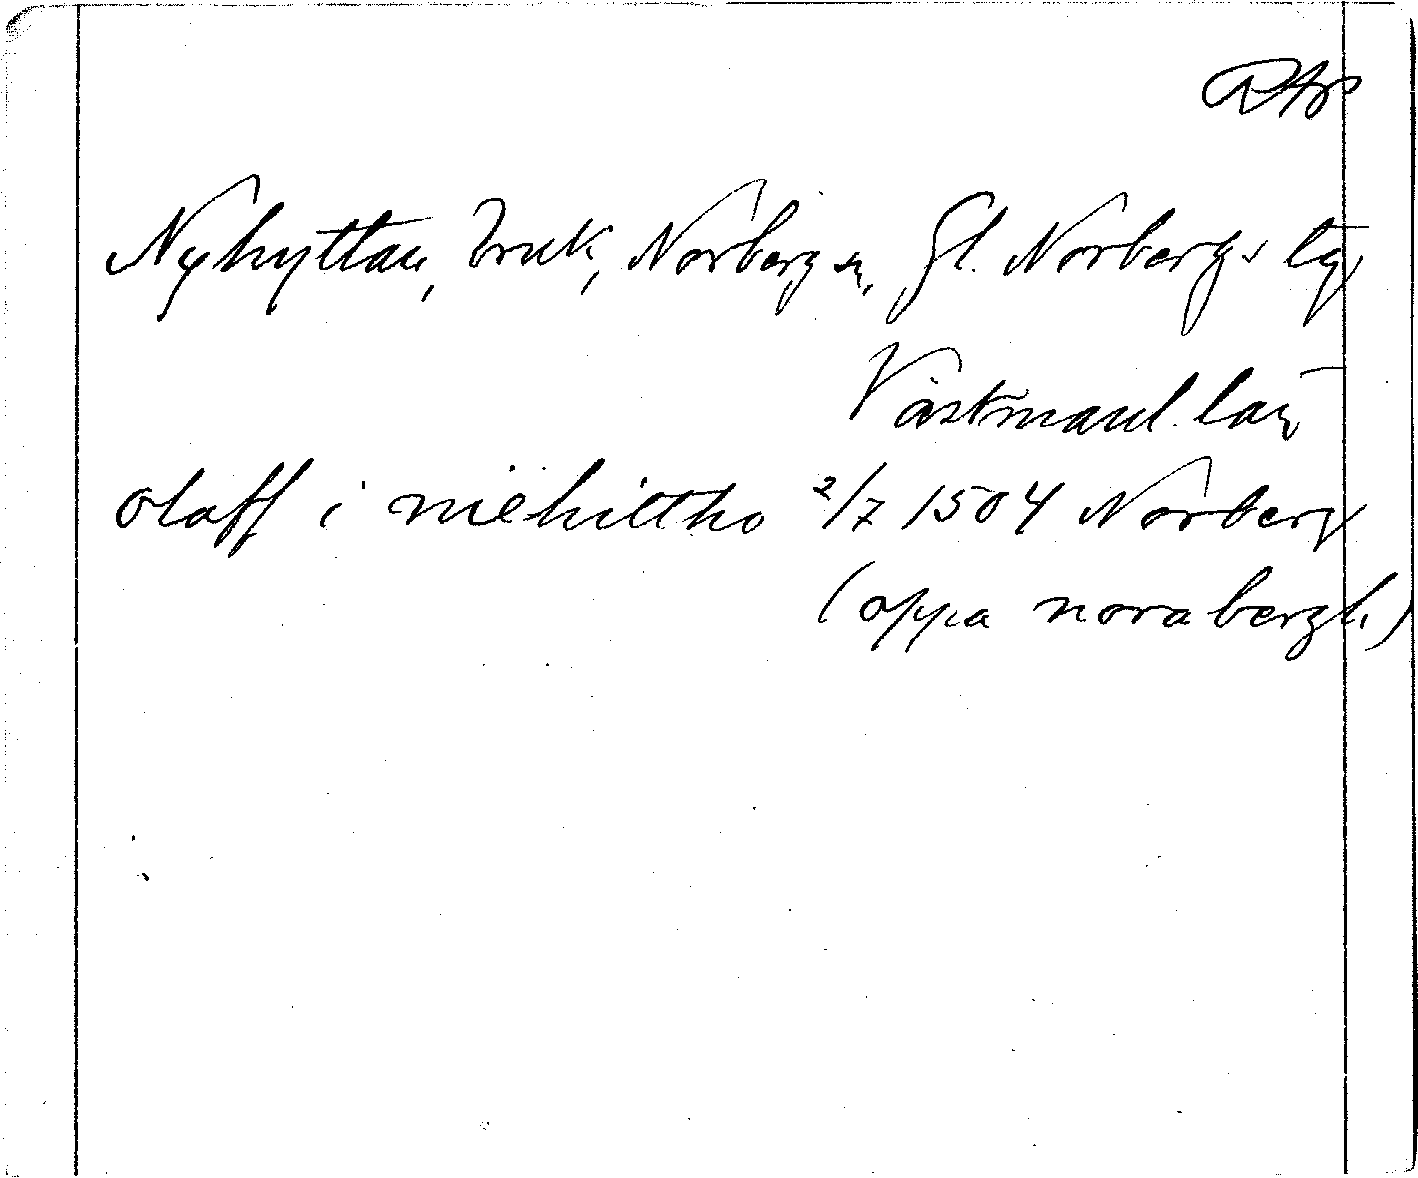 Nyhyttan, bruk, Norberg sn, Gl. Norbergs bg,
Västmanl. län
Olaff i niëhittho 2/7 1504 Norberg
(oppa norabergh)